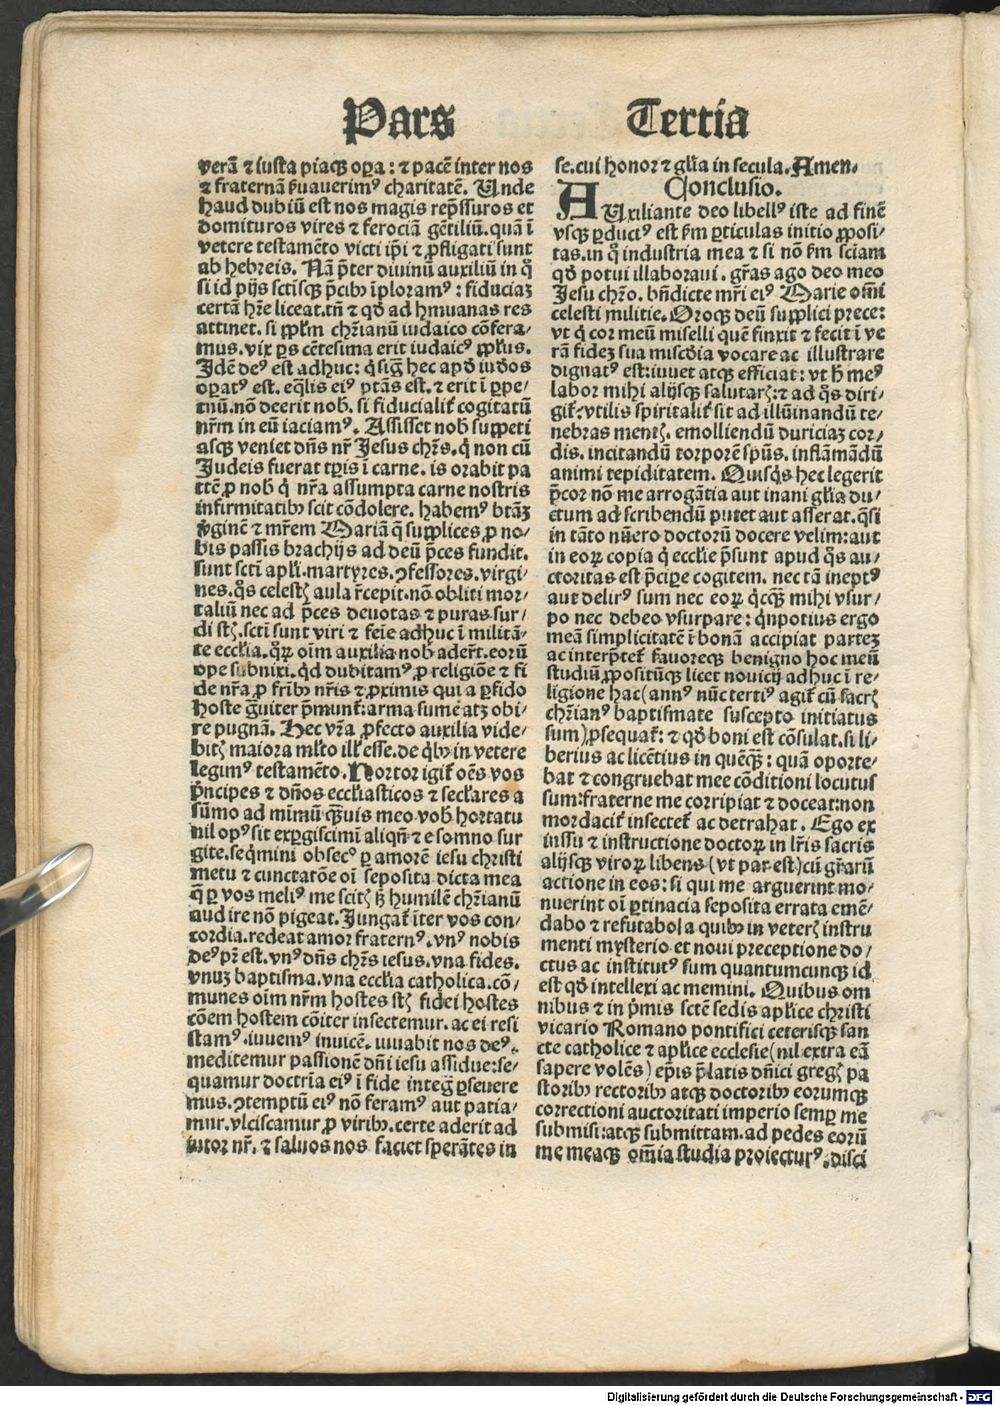 Pars Tertia
verā ⁊ iusta piaqȝ oꝑa: ⁊ pacē inter nos
⁊ fraternā ẜuauerimꝰ charitatē. Unde
haud dubiū est nos magis rep̄ssuros et
domituros vires ⁊ ferociā gētiliū. quā ī
vetere testamēto victi ip̄i ⁊ ꝓfligati sunt
ab hebreis. Nā p̄ter diuinū auxiliū in q̊
si id pijs sctīsqȝ p̄cibꝰ īploramꝰ: fiduciaȝ
certā hr̄e liceat. tn̄ ⁊ qd̄ ad hmuanas res
attinet. si ꝓpl̄m chr̄ianū iudaico cōfera⸗
mus. vix ꝑs cētesima erit iudaicꝰ ꝓpl̄us.
Idē deꝰ est adhuc: q̇ sig̅ hec apd̄ iud̄os
oꝑatꝰ est. eq̄lis eiꝰ ptās est. ⁊ erit ī ꝑpe⸗
tuū. nō deerit nob̄. si fiducialit̄ cogitatū
nr̄m in eū iaciamꝰ. Assisset nob̄ suppeti
asqȝ veniet dn̄s nr̄ Jesus chr̄s. q̇ non cū
Judeis fuerat tp̄is ī carne. is orabit pa
trē ꝓ nob̄ q̇ nr̄a assumpta carne nostris
infirmitatibꝰ scit cōdolere. habemꝰ btāȝ
v̇ginē ⁊ mr̄em Mariā q̄ supplices ꝓ no⸗
bis passis brachijs ad deū p̄ces fundit.
sunt sctī apl̄i. martyres. ꝯfessores. virgi⸗
nes. q̊s celestꝭ aula r̄cepit. nō obliti mor⸗
taliū nec ad p̄ces deuotas ⁊ puras sur⸗
di stꝭ. sctī sunt viri ⁊ feīe adhuc ī militā⸗
te eccl̄ia. qꝝ oīm auxilia nob̄ ader̄t. eorū
ope subnixi. qd̄ dubitamꝰ ꝓ religiōe ⁊ fi
de nr̄a ꝓ fr̄ibꝰ nr̄is ⁊ ꝓximis qui a ꝑfido
hoste g̅uiter p̄munt̄: arma sumē atȝ obi⸗
re pugnā. Hec vr̄a ꝓfecto auxilia vide⸗
bitꝭ maiora ml̄to ill̄ esse. de q̇bꝰ in vetere
legimꝰ testamēto. Hortor igit̄ oēs vos
p̄ncipes ⁊ dn̄os eccl̄iasticos ⁊ secl̄ares a
sūmo ad mīmū qȝuis meo vob̄ hortatu
nil opꝰ sit exꝑgiscimī aliqn̄ ⁊ e somno sur
gite. seq̇mini obsecꝰ ꝑ amorē iesu christi
metu ⁊ cunctatōe oī seposita dicta mea
q̄ ꝑ vos meliꝰ me scitꝭ ȝ humilē chr̄ianū
audire nō pigeat. Jungat̄ īter vos con⸗
cordia. redeat amor fraternꝰ. vnꝰ nobis
deꝰ pr̄ est. vnꝰ dn̄s chr̄s iesus. vna fides.
vnuȝ baptisma. vna eccl̄ia catholica. cō⸗
munes oīm nr̄m hostes stꝭ fidei hostes
cōem hostem cōiter insectemur. ac ei resi
stamꝰ. iuuemꝰ inuicē. iuuabit nos deꝰ.
meditemur passionē dn̄i iesu assidue: se⸗
quamur doctrīa eiꝰ ī fide integ̅ ꝑseuere
mus. ꝯtemptū eiꝰ nō feramꝰ aut patia⸗
mur. vlciscamur ꝓ viribꝰ. certe aderit ad
iutor nr̄. ⁊ saluos nos faciet sperātes in
se. cui honor ⁊ gl̄ia in secula. Amen.
Conclusio.
AUxiliante deo libellꝰ iste ad finē
vsqȝ ꝑductꝰ est ẜm ꝑticulas initio ꝓposi⸗
tas. in q̊ industria mea ⁊ si nō ẜm sciam
qd̄ potui illaboraui. gr̄as ago deo meo
Jesu chr̄o. bn̄dicte mr̄i eiꝰ Marie om̄i
celesti militie. Oroqȝ deū supplici prece:
vt q̇ cor meū miselli quē finxit ⁊ fecit ī ve
rā fideȝ sua mīscd̄ia vocare ac illustrare
dignatꝰ est: iuuet atqȝ efficiat: vt h̄ meꝰ
labor mihi alijsqȝ salutarꝭ: ⁊ ad q̊s diri⸗
git̄: vtilis spiritalit̄ sit ad illūinandū te⸗
nebras mentꝭ. emolliendū duriciaȝ cor⸗
dis. incitandū torporē sp̄us. inflāmādū
animi tepiditatem. Quisq̇s hec legerit
p̄cor nō me arrogātia aut inani gl̄ia du⸗
ctum ad scribendū putet aut asserat. q̄si
in tāto nūero doctorū docere velim: aut
in eoꝝ copia q̇ eccl̄ie p̄sunt apud q̊s au⸗
ctoritas est p̄cipe cogitem. nec tā ineptꝰ
aut delirꝰ sum nec eoꝝ q̇cqȝ mihi vsur⸗
po nec debeo vsurpare: q̇npotius ergo
meā simplicitatē ī bonā accipiat parteȝ
ac interp̄tet̄ fauoreqȝ benigno hoc meū
studiū ꝓpositūqȝ licet nouicij adhuc ī re⸗
ligione hac (annꝰ nūc tertiꝰ agit̄ cū sacrꝭ
chr̄ianꝰ baptismate suscepto initiatus
sum) ꝓsequat̄: ⁊ qd̄ boni est cōsulat. si li⸗
berius ac licētius in quēqȝ: quā oporte⸗
bat ⁊ congruebat mee cōditioni locutus
sum: fraterne me corripiat ⁊ doceat: non
mordacit̄ insectet̄ ac detrahat. Ego ex
iussu ⁊ instructione doctoꝝ in lr̄is sacris
alijsqȝ viroꝝ libens (vt par est) cū gr̄arū
actione in eos: si qui me arguerint mo⸗
nuerint oī ꝑtinacia seposita errata emē⸗
dabo ⁊ refutabo / a quibꝰ in veterꝭ instru
menti mysterio et noui preceptione do⸗
ctus ac institutꝰ sum quantumcunqȝ id
est qd̄ intellexi ac memini. Quibus om
nibus ⁊ in p̄mis sctē sedis apl̄ice christi
vicario Romano pontifici ceterisqȝ san
cte catholice ⁊ apl̄ice ecclesie (nil extra eā
sapere volēs) ep̄is p̄latis dn̄ici gregꝭ pa
storibꝰ rectoribꝰ atqȝ doctoribꝰ eorumqȝ
correctioni auctoritati imperio semꝑ me
submisi: atqȝ submittam. ad pedes eorū
me meaqȝ om̄ia studia proiecturꝰ. disci
Digitalisierung gefördert durch die Deutsche Forschungsgemeinschaft - DFG